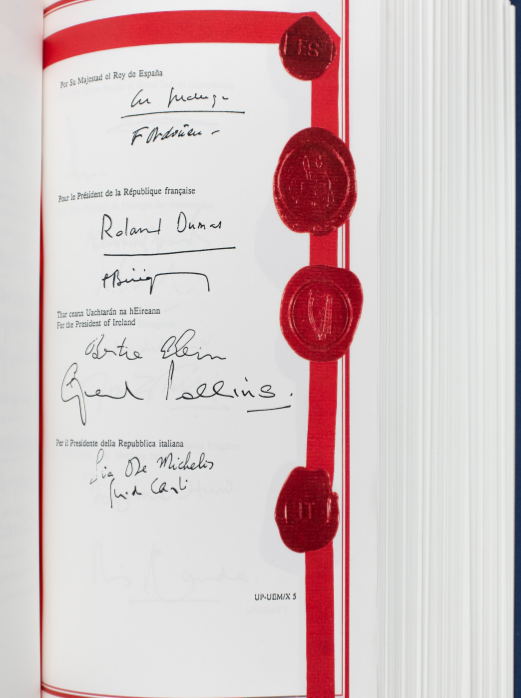 ES
Por Su Majestad el Rey de España
F Ordóñez
Pour le Président de la République française
Roland Dumas
Thar ceann Uachtarán na hÉireann
For the President of Ireland
Bertie
Gerard Collins.
Per il Presidente della Repubblica italiana
De Michelis
IT
UP-UEM/X 5